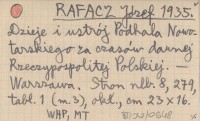 RAFACZ Józef 1935.
Dzieje i ustrój Podhala Nowo
tarskiego za czasów dawnej
Rzeczypospolitej Polskiej. —
Warszawa. Stron nlb. 8, 279,
tabl. 1 (m. 3), okł., cm 23 x 16.
WHP, MT